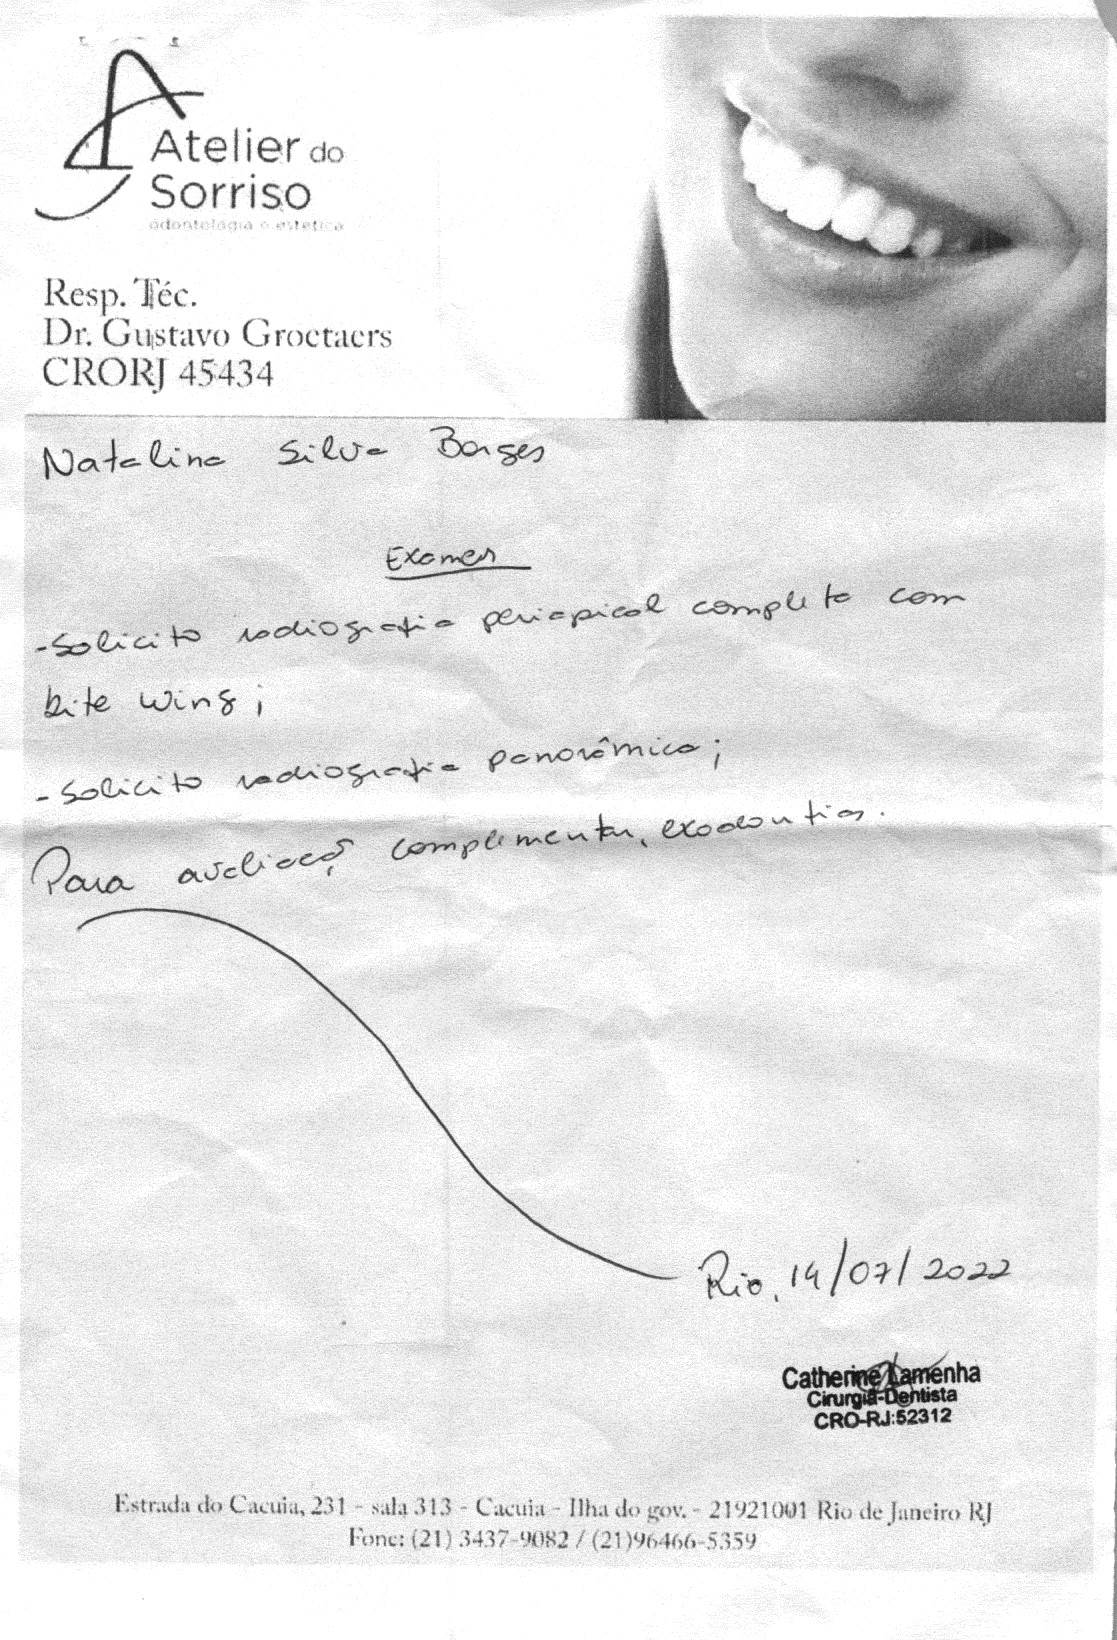 Atelier do
Sorriso
odontologia e estética
Resp. Téc.
Dr. Gustavo Groetaers
CRORJ 45434
Natalina Silva Borges
Exames
-Solicito radiografia periapical completa com
bite wing;
-Solicito radiografia panorâmica;
Para avaliação complementar, exodontias.
Rio, 14/07/2022
Catherine Lamenha
Cirurgiã-Dentista
CRO-RJ:52312
Estrada do Cacuia, 231 - sala 313 - Cacuia - Ilha do gov. - 21921001 Rio de Janeiro RJ
Fone: (21) 3437-9082 / (21)96466-5359